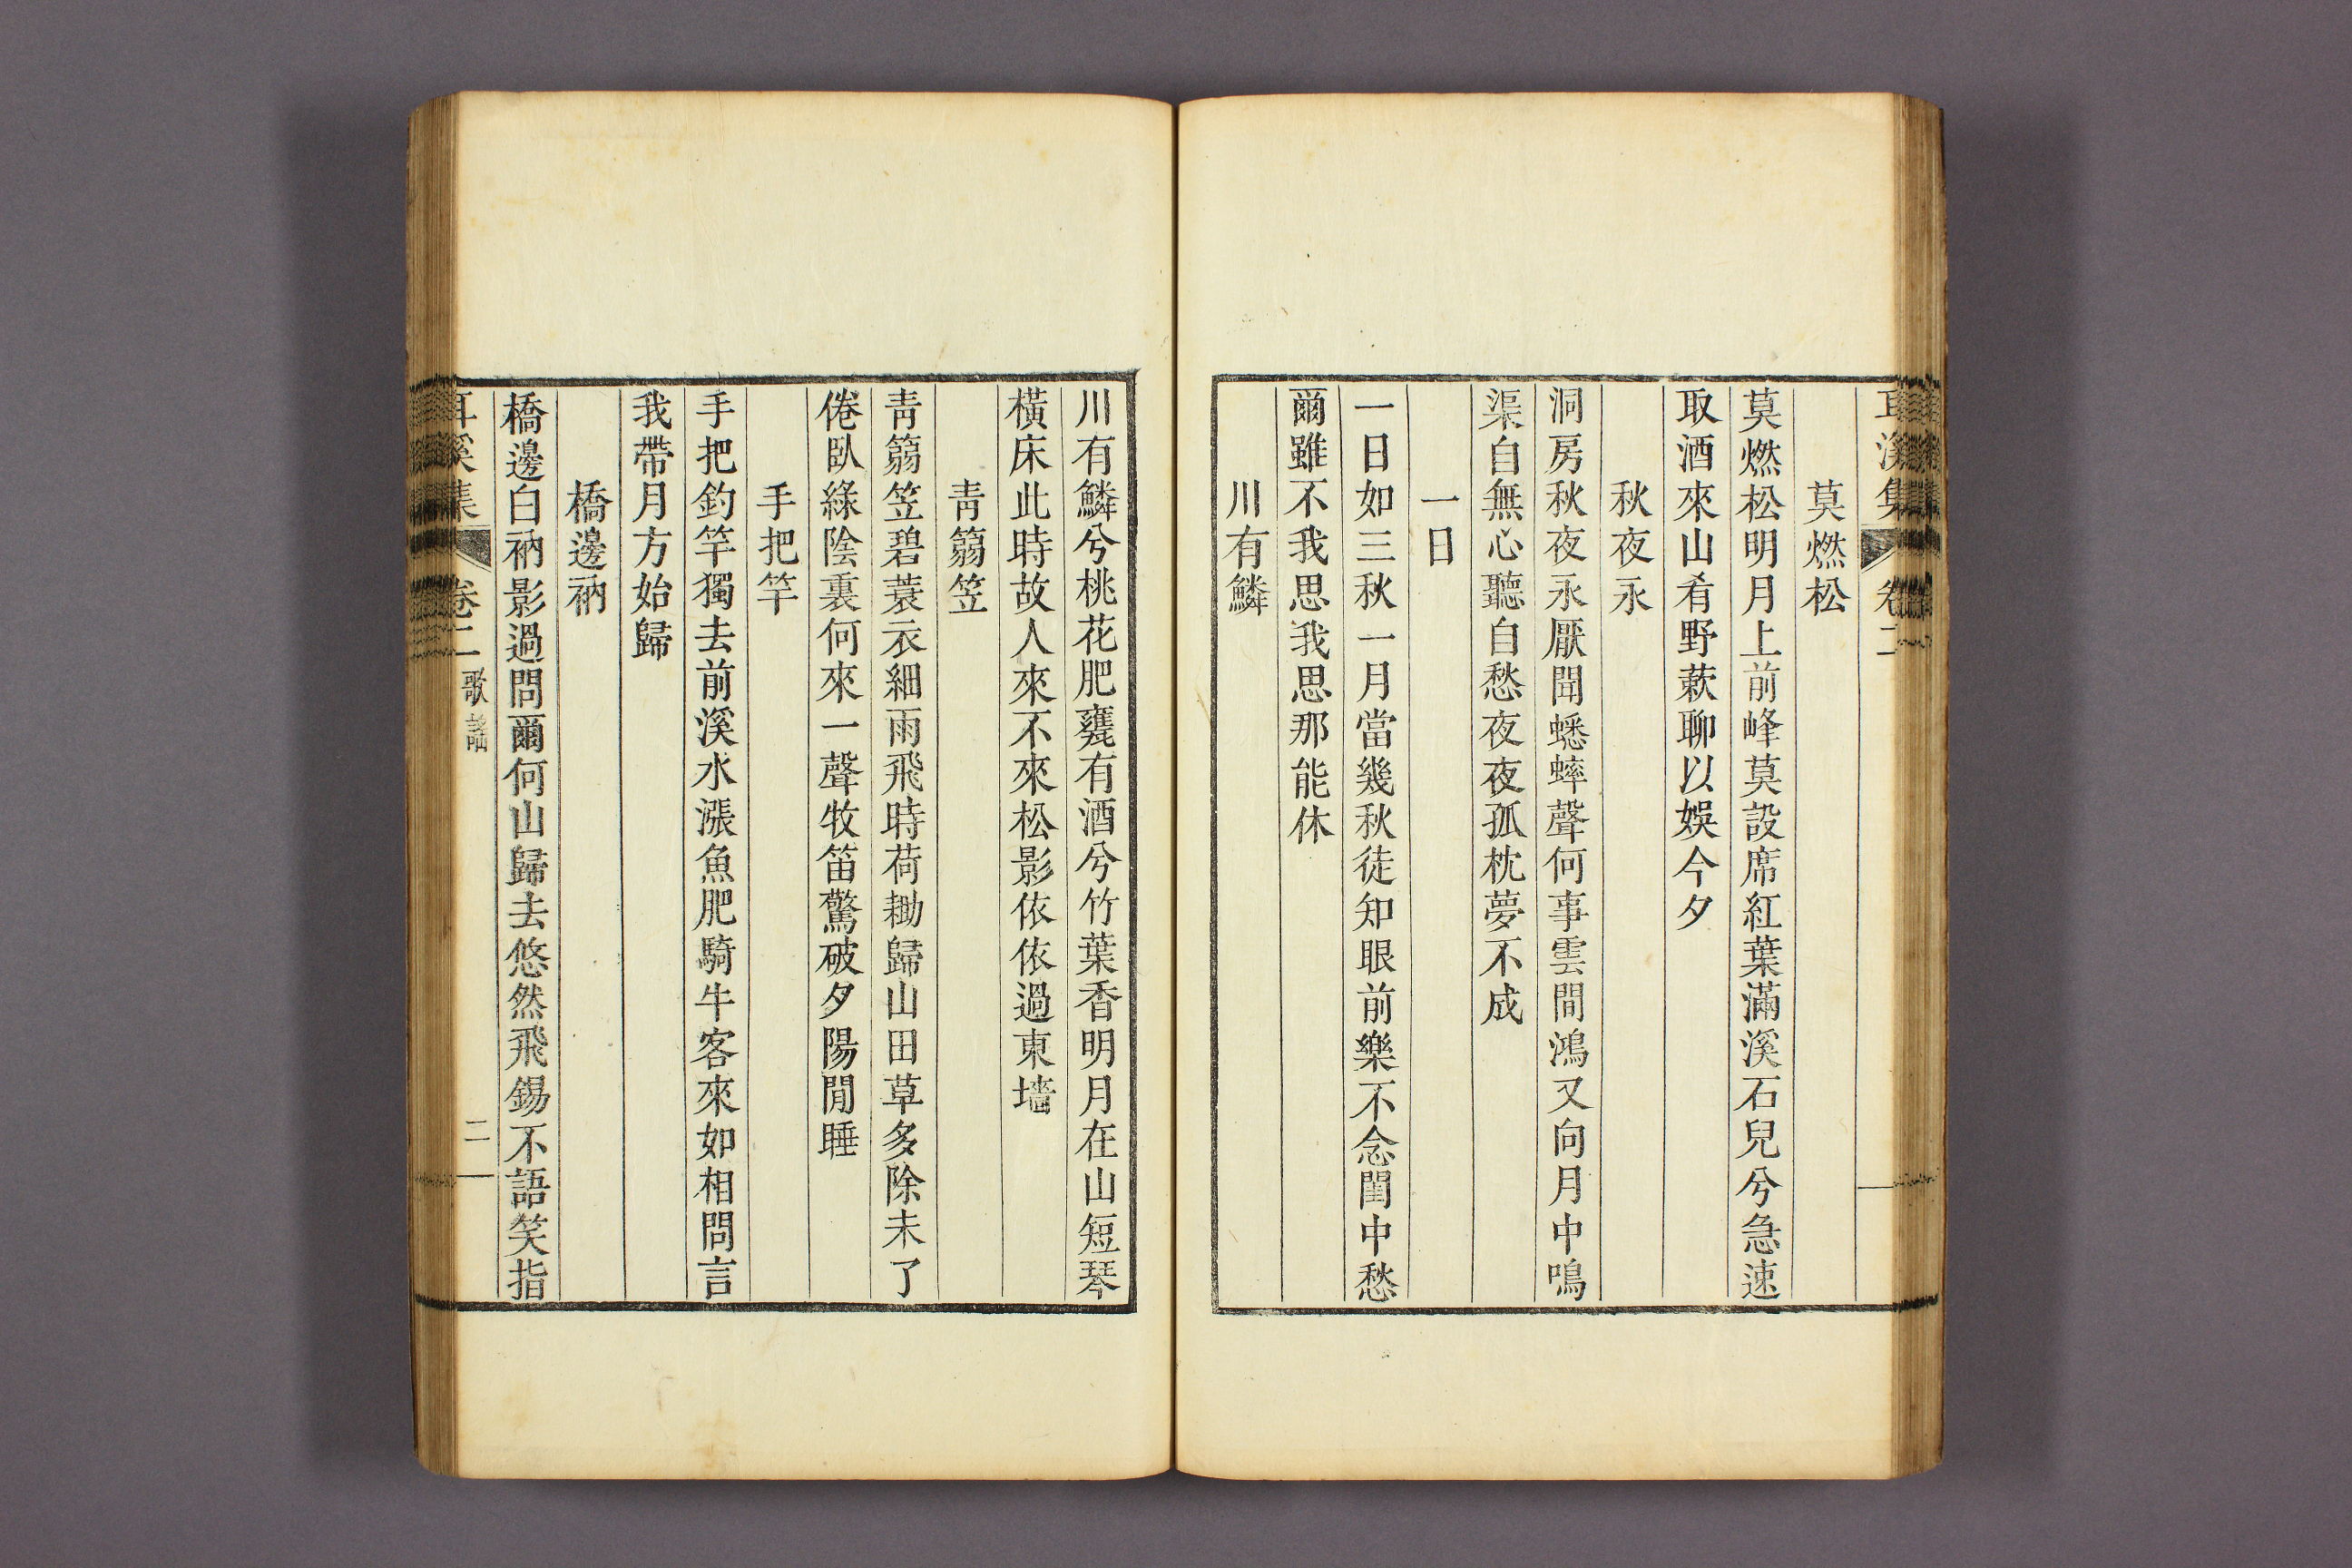 耳溪集 卷二
莫燃松
莫燃松明月上前峰莫設席紅葉滿溪石兒兮急速
取酒來山肴野蔌聊以娛今夕
秋夜永
洞房秋夜永厭聞蟋蟀聲何事雲間鴻又向月中鳴
渠自無心聽自愁夜夜孤枕夢不成
一日
一日如三秋一月當幾秋徒知眼前樂不念閨中愁
爾雖不我思我思那能休
川有鱗
川有鱗兮桃花肥甕有酒兮竹葉香明月在山短琴
橫床此時故人來不來松影依依過東墻
靑篛笠
靑篛笠碧蓑衣細雨飛時荷耡歸山田草多除未了
倦臥綠陰裏何來一聲牧笛驚破夕陽閒睡
手把竿
手把釣竿獨去前溪水漲魚肥騎牛客來如相問言
我帶月方始歸
橋邊衲
橋邊白衲影過問爾何山歸去悠然飛錫不語笑指
耳溪集 卷二 歌謠 二